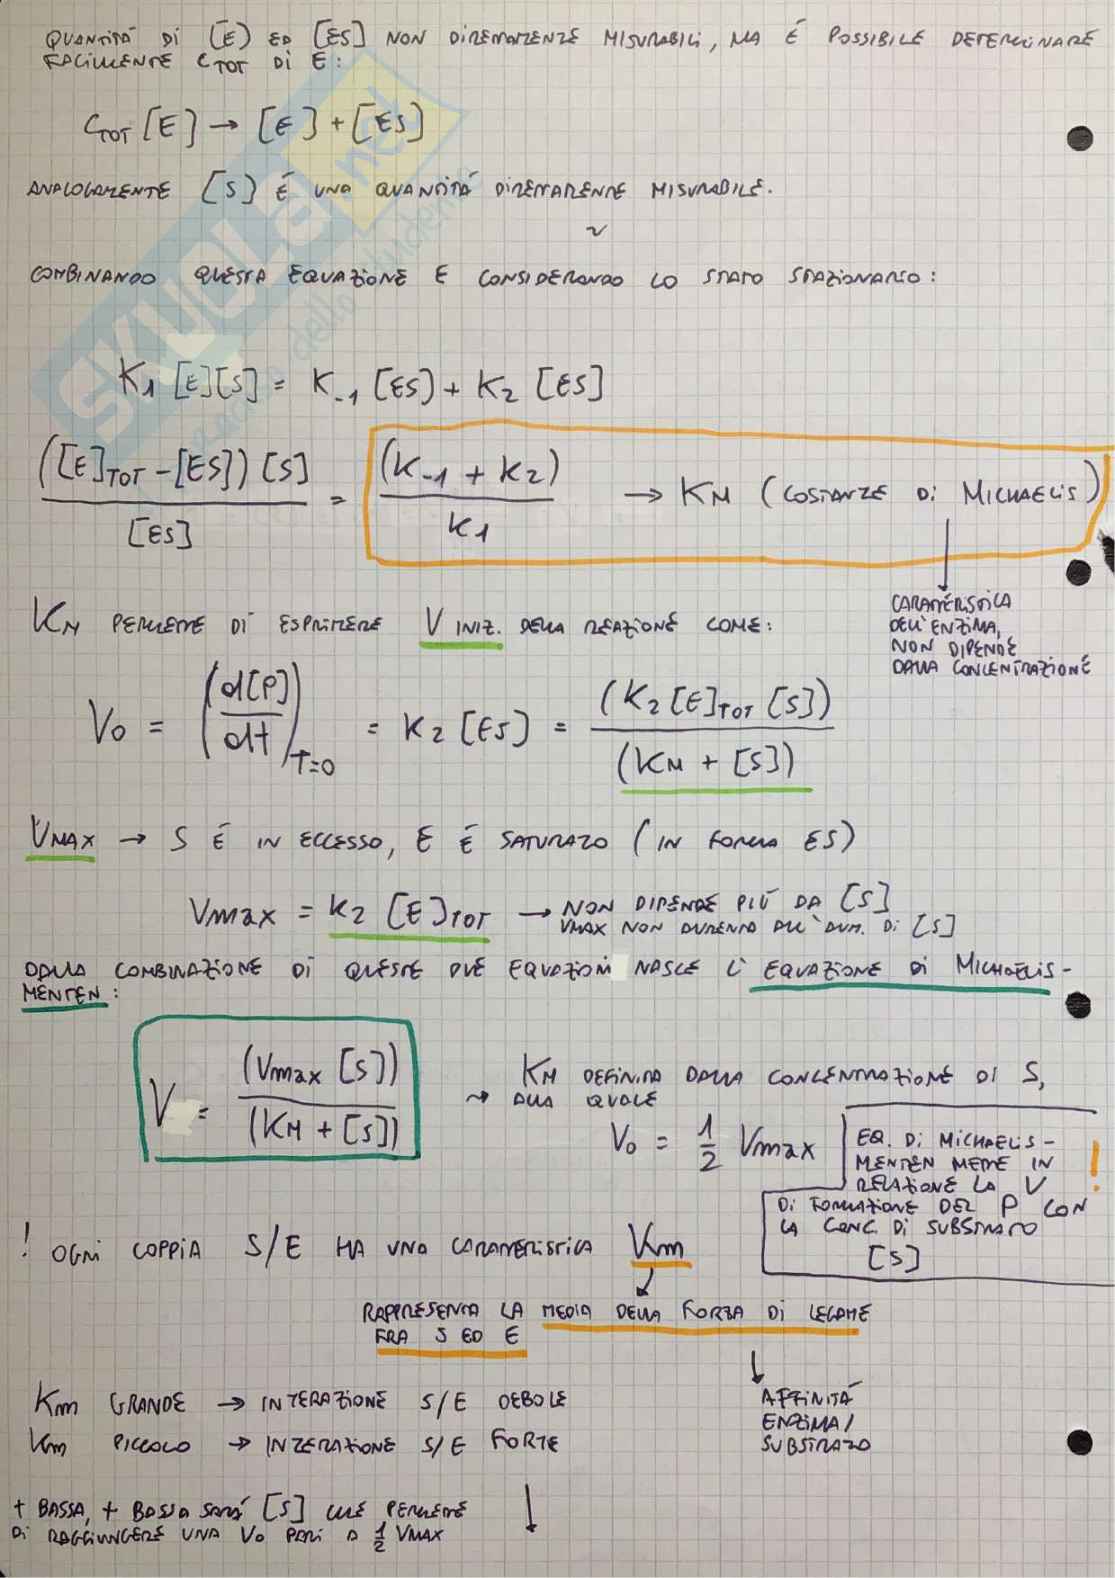 QUANTITÀ DI [E] ED [ES] NON DIRETTAMENTE MISURABILI, MA È POSSIBILE DETERMINARE
FACILMENTE C_TOT DI E:
C_TOT [E] → [E] + [ES]
ANALOGAMENTE [S] È UNA QUANTITÀ DIRETTAMENTE MISURABILE.
COMBINANDO QUESTA EQUAZIONE E CONSIDERANDO LO STATO STAZIONARIO:
K_1 [E][S] = K_-1 [ES) + K_2 [ES]
([E]_TOT - [ES]) [S] / [ES] = (K_-1 + K_2) / K_1 → K_M (COSTANTE DI MICHAELIS)
CARATTERISTICA
DELL'ENZIMA,
NON DIPENDE
DALLA CONCENTRAZIONE
K_M PERMETTE DI ESPRIMERE V INIZ. DELLA REAZIONE COME:
V_0 = (d[P] / dt)_T=0 = K_2 [ES] = (K_2 [E]_TOT [S]) / (K_M + [S])
V_MAX → S È IN ECCESSO, E È SATURATO (IN FORMA ES)
V_max = K_2 [E]_TOT → NON DIPENDE PIÙ DA [S]
VMAX NON AUMENTA ALL'AUM. DI [S]
DALLA COMBINAZIONE DI QUESTE DUE EQUAZIONI NASCE L'EQUAZIONE DI MICHAELIS-
MENTEN:
V = (V_max [S]) / (K_M + [S])
→ K_M DEFINITA DALLA CONCENTRAZIONE DI S,
ALLA QUALE
V_0 = 1/2 V_max
EQ. DI MICHAELIS-
MENTEN METTE IN
RELAZIONE LA V
DI FORMAZIONE DEL P CON
LA CONC. DI SUBSTRATO
[S]
!
! OGNI COPPIA S/E HA UNA CARATTERISTICA K_m
RAPPRESENTA LA MEDIA DELLA FORZA DI LEGAME
FRA S ED E
AFFINITÀ
ENZIMA/
SUBSTRATO
K_m GRANDE → INTERAZIONE S/E DEBOLE
K_m PICCOLO → INTERAZIONE S/E FORTE
+ BASSA, + BASSA SARÀ [S] CHE PERMETTE
DI RAGGIUNGERE UNA V_0 PARI A 1/2 VMAX
SKUOLA.net